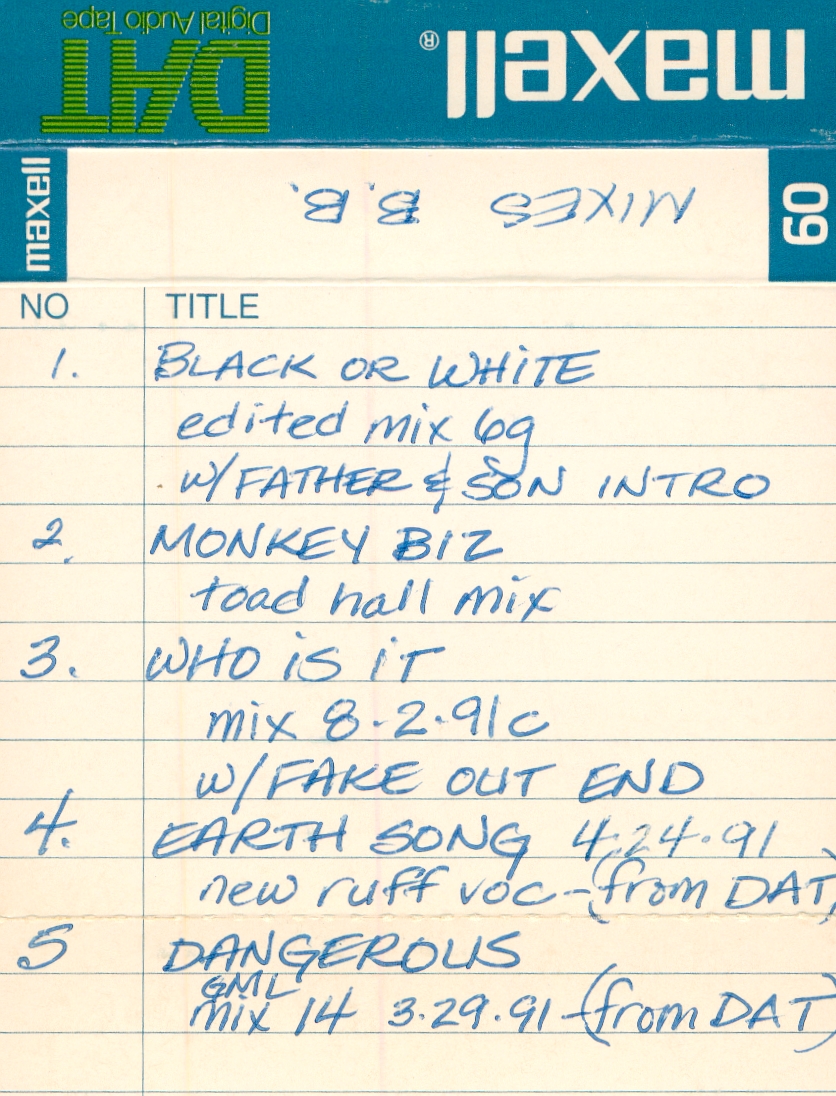 DAT
Digital Audio Tape
maxell®
maxell
MIXES B.B.
60
NO TITLE
1. BLACK OR WHITE
edited mix 69
w/FATHER & SON INTRO
2. MONKEY BIZ
toad hall mix
3. WHO IS IT
mix 8-2-91c
w/FAKE OUT END
4. EARTH SONG 4-24-91
new ruff voc-(from DAT)
5 DANGEROUS
GML
mix 14 3-29-91-(from DAT)